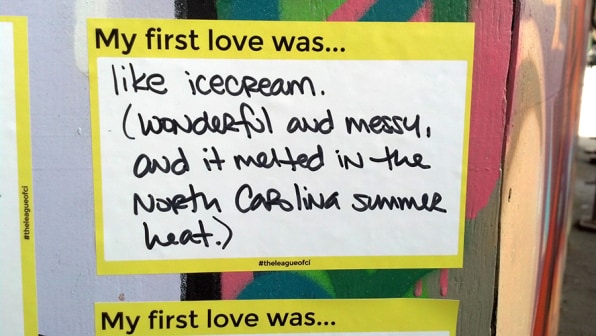 My first love was...
like icecream.
(wonderful and messy,
and it melted in the
North Carolina summer
heat.)
#theleagueofcl
#theleagueofcl
My first love was...